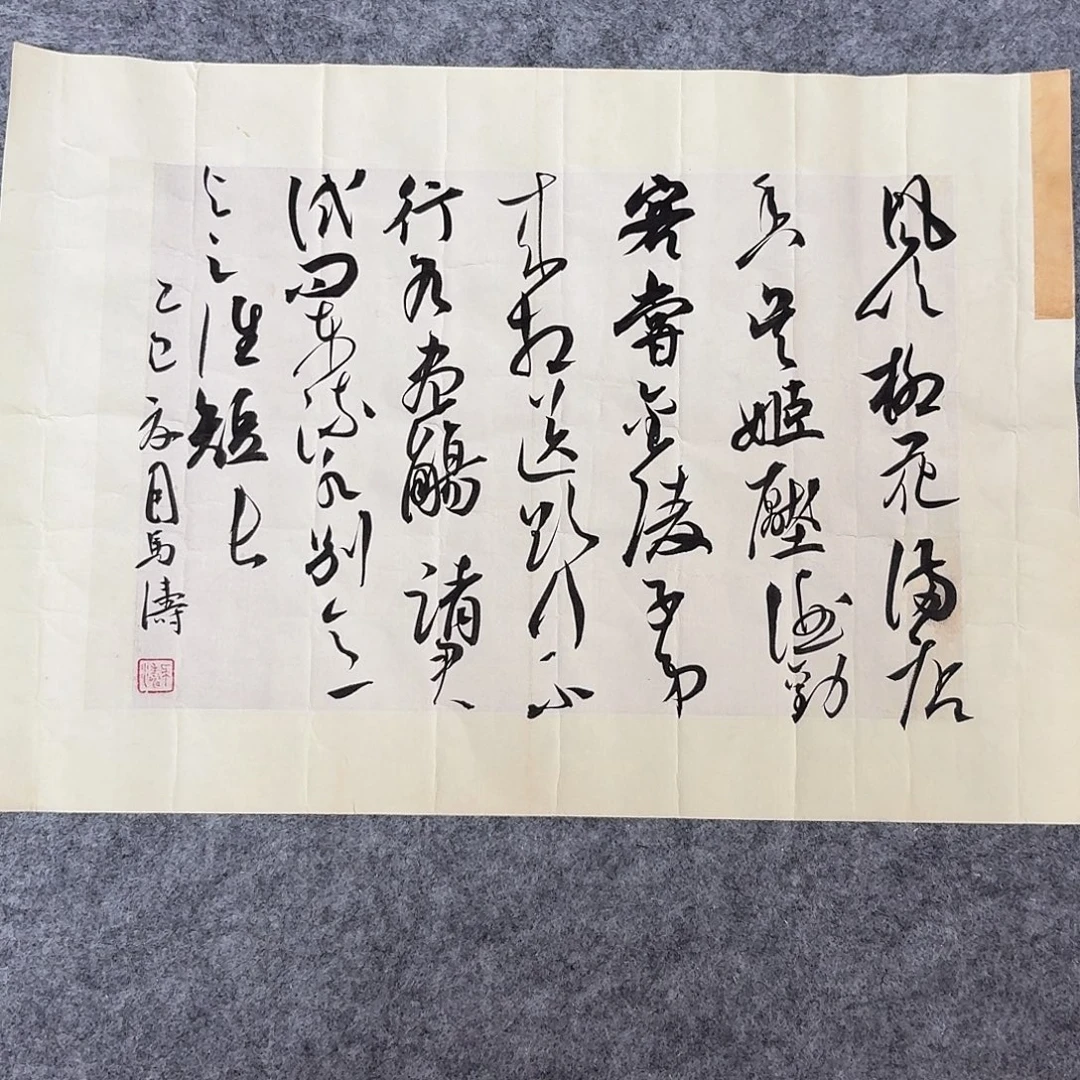 風吹柳花滿店
香吳姬壓酒勸
客嘗金陵子弟
来相送欲行不
行各盡觴請君
試問東流水別意
與之誰短長
乙巳 月馬濤